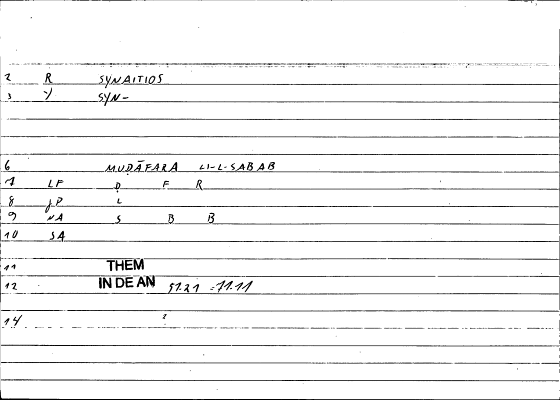 2 R SYNAITIOS
3 Y SYN-
6 MUḌĀFARA LI-L-SABAB
7 LF Ḍ F R
8 JP L
9 NA S B B
10 SA
11 THEM
12 IN DE AN 51.21 =11.11
14 ²